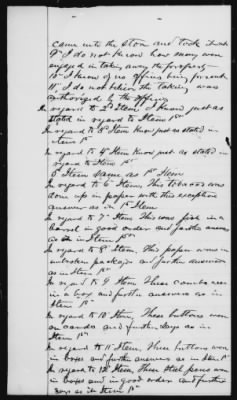 came into the store and took it out
9" I do not know how many were
engaged in taking away the property
10" I know of no officer being present
11" I do not believe the taking was
authorized by the officers
In regard to 2d Item I know just as
stated in regard to Item 1st
In regard to 3d Item Know just as stated in
Item 1st
In regard to 4th Item Know just as stated in
regard to Item 1st
5th Item same as 1st Item
In regard to 6th Item. This tobacco was
done up in papers with this exception
answer as in 1st Item
In regard to 7th Item This was fish in a
barrel in good order and further answers
as in Item 1st
In regard to 8th Item. This paper was in
unbroken packages and further answers
as in Item 1st
In regard to 9 Item These combs were
in a box and further answers as in
Item 1st
In regard to 10 Item, These buttons were
on cards and further says as in
Item 1st
In regard to 11 Item, These buttons were
in boxes and further answers as in Item 1st
In regard to 12th Item, These steel pens were
in boxes and in good order and further
says as in Item 1st